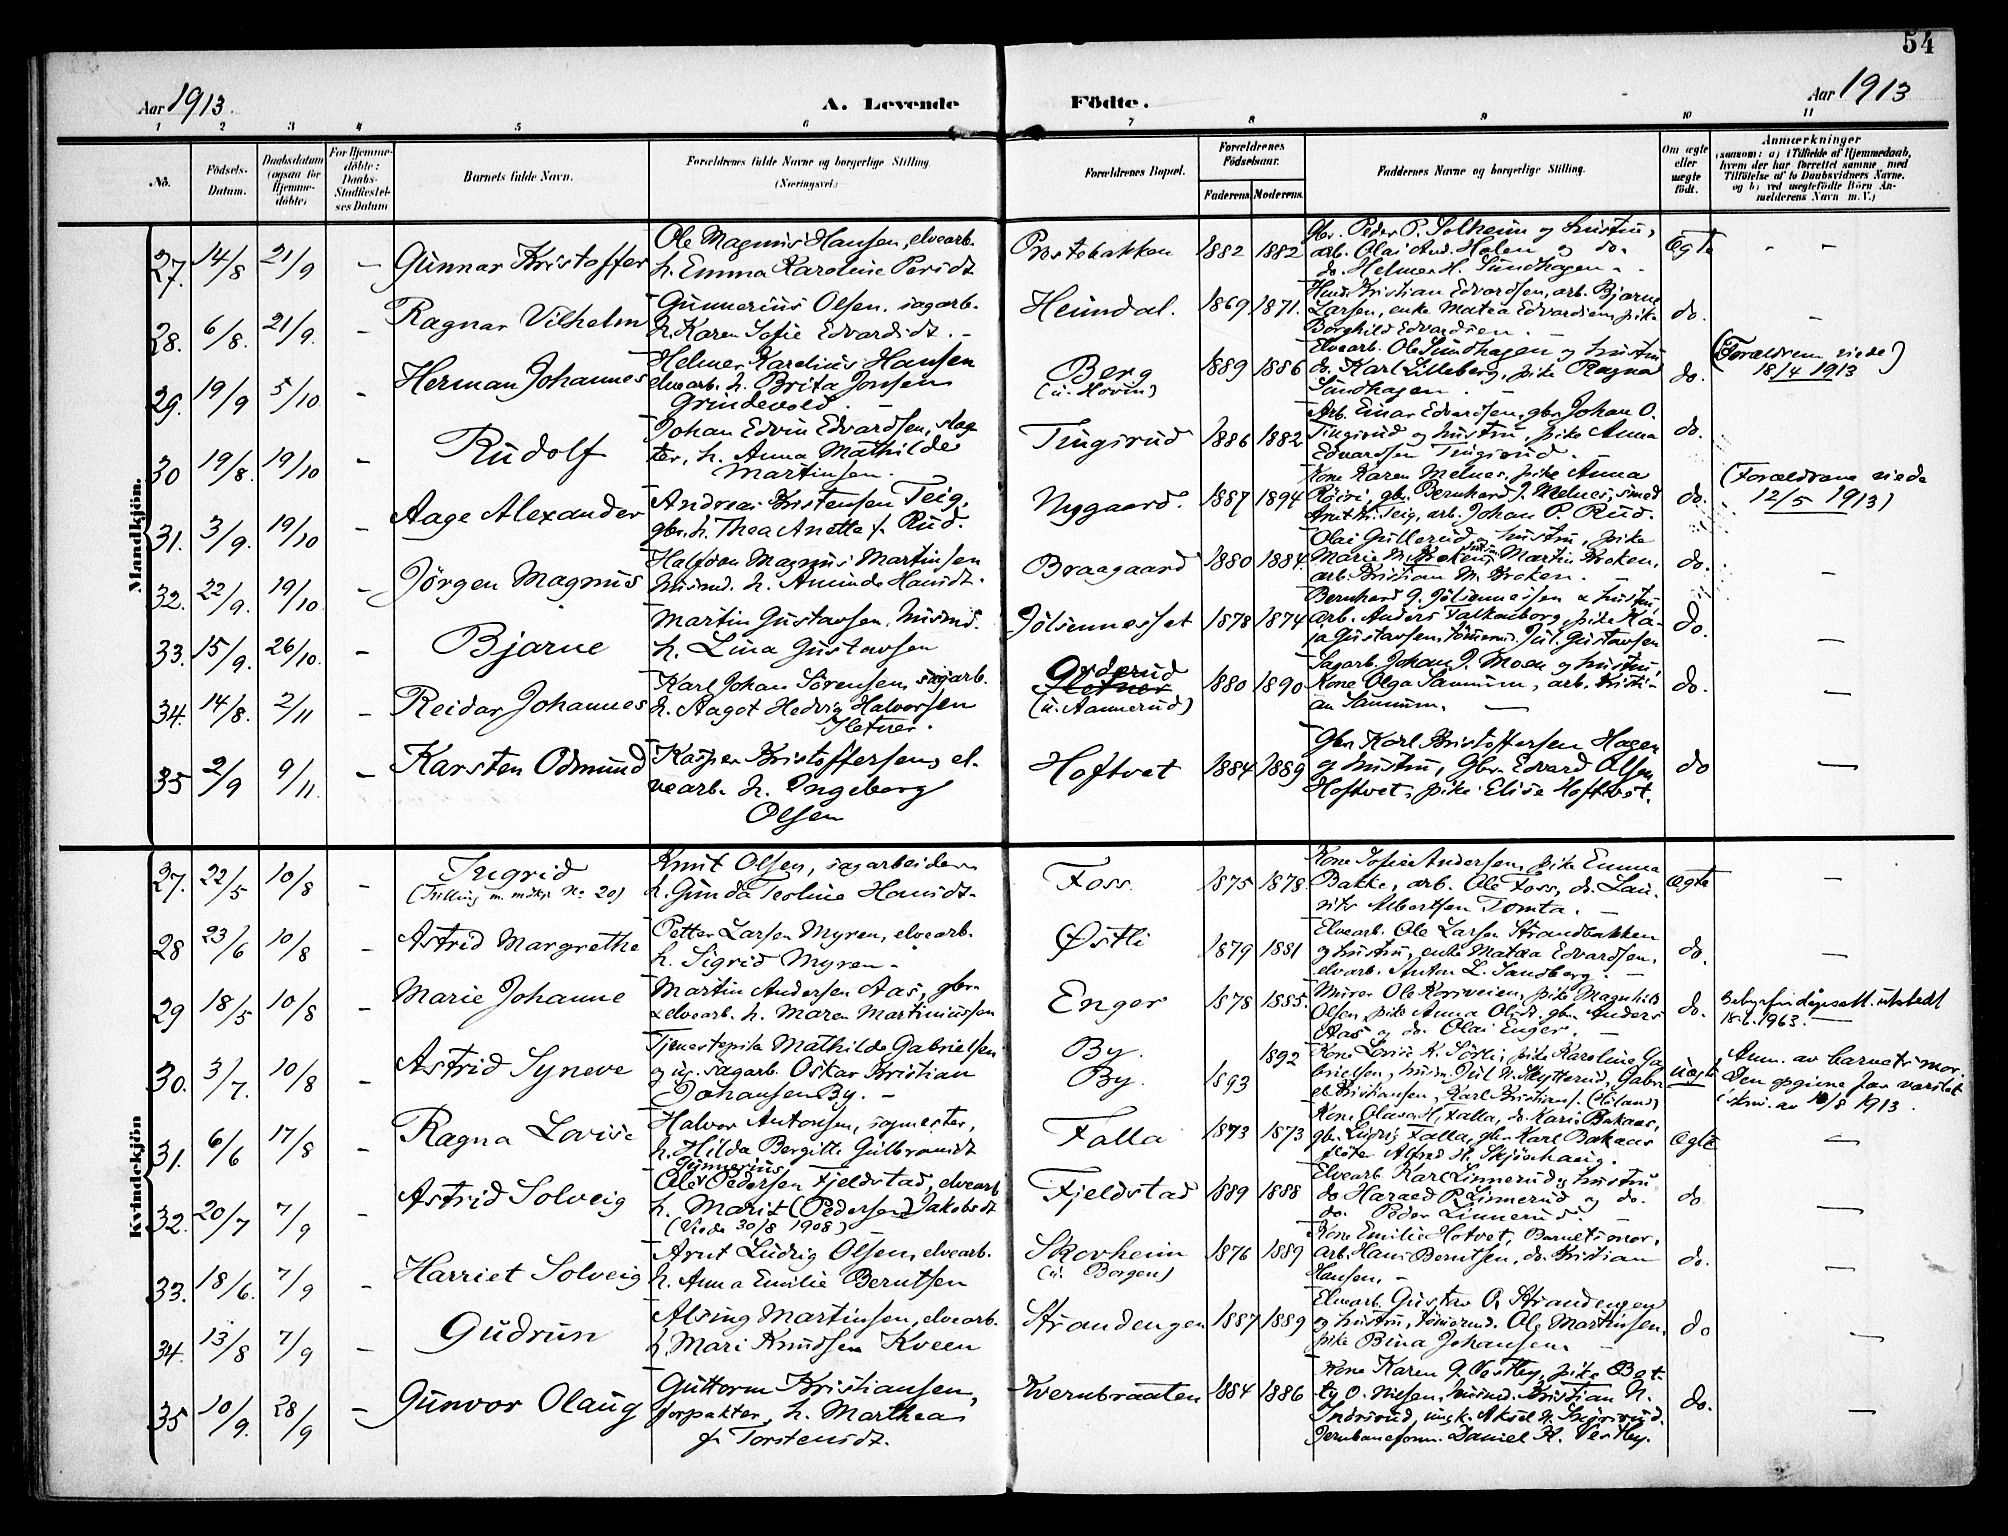 54
Aar 1913.
A. Levende
Födte.
Aar 1913
1 2 3 4 5 6 7 8 9 10 11
No.
Födsels-Datum.
Daabsdatum (ogsaa for Hjemme-döbte)
For Hjemme-döbte: Daabs-Stadfæstel-ses Datum
Barnets fulde Navn.
Forældrenes fulde Navne og borgerlige Stilling. (Næringsvei.)
Forældrenes Bopæl.
Forældrenes Födselsaar.
Faderens Moderens.
Faddernes Navne og borgerlige Stilling.
Om ægte eller uægte födt.
Anmærkninger (saasom: a) i Tilfælde af Hjemmedaab, hvem der har forrettet samme med Tilföielse af to Daabsvidners Navne, og b) ved uægtefödte Börn An-melderens Navn m. V.)
Mandkjön.
27. 14/8 21/9 – Gunnar Kristoffer
Ole Magnus Hansen, elvearb.
h. Emma Karoline Persdt.
Prestebakken 1882 1882
Gbr. Peder P. Solheim og hustru,
arb. Olai And. Holen og do.
do. Helmer H. Sundhagen
Ægte – –
28. 6/8. 21/9. – Ragnar Vilhelm
Gunnerius Olsen, sagarb.
h. Karen Sofie Edvardsdt. –
Heimdal. 1869 1871.
Kristian Edvardsen, arb. Bjarne
Larsen, enke Matea Edvardsen, pike
Borghild Edvardsen. –
do. –
29. 19/9 5/10. – Herman Johannes
Helmer Karelius Hansen
elvearb. h. Brita Jonsen
Grindevold. –
Berg
(u. Hovin)
1889 1886
Elvearb. Ole Sundhagen og hustru
do. Karl Lilleberg, pike Ragna
Sundhagen. –
do.
(Forældrene viede
18/4 1913)
30 19/8. 19/10 – Rudolf
Johan Edvin Edvardsen, slag-
ter, h. Anna Mathilde
Martinsen. –
Tingsrud 1886 1882
Arb. Einar Edvardsen, gbr. Johan O.
Tingsrud og hustru, pike Anna
Edvardsen Tingsrud. –
do.
31. 3/9. 19/10 – Aage Alexander
Andreas Kristensen Teig,
gbr. h. Thea Anette f. Rud.
Nygaard. 1887 1894
Kone Karen Melnes, pike Anna
gbr. Bernhard J. Melnes, smed
Teig, arb. Johan P. Rud.
do.
(Forældrene viede
12/5 1913)
32. 22/9. 19/10. – Jørgen Magnus
Halfdan Magnus Martinsen
husmd. h. Aminda Hansdt.
Braagaard 1880 1884.
Olai Gullerud og hustru, pike
Marie M. Martin Kroken,
arb. Kristian M. Kroken. –
do. –
33. 15/9. 26/10. – Bjarne
Martin Gustavsen, husmd.
h. Lina Gustavsen
Jølsennesset 1878 1874
Bernhard J. Jølsennessen & hustru,
arb. Anders Falkenborg, pike Ka-
ja Gustavsen, tømmermd. Jul. Gustavsen
do. –
34. 14/8. 2/11 – Reidar Johannes
Karl Johan Sørensen, sagarb.
h. Aagot Hedvig Halvorsen
Sletner.
Orderud
Sletner
(u. Aannerud)
1880 1890
Sagarb. Johan J. Moen og hustru,
Kone Olga Sannum, arb. Kristi-
an Sannum. –
do. –
35 2/9 9/11. – Karsten Odmund
Kasper Kristoffersen, el-
vearb. h. Ingeborg
Olsen
Hoftvet 1884 1889
Gbr. Karl Kristoffersen Hagen
og hustru, Gbr. Edvard Olsen
Hoftvet, pike Elise Hoftvet.
do –
Kvindekjön
27. 22/5 10/8 – Ingrid
(Trilling m. mdkj. No. 20)
Knut Olsen, sagarbeider
h. Gunda Teoline Hansdt.
Foss. 1875 1878
Kone Sofie Andersen, pike Emma
Bakke, arb. Ole Foss, do. Lau-
ritz Albertsen Tomta. –
Ægte –
28 23/6 10/8 – Astrid Margrethe
Petter Larsen Myren, elvearb.
h. Sigrid Myren –
Østli 1879 1881
Elvearb. Ole Larsen Strandbakken
og hustru, enke Matea Edvardsen,
elvearb. Anton L. Sandberg. –
do. –
29 18/5 10/8 – Marie Johanne
Martin Andersen Aas, gbr.
& elvearb. h. Maren Martinussen
Enger 1878 1885.
Murer Ole Korsveien, pike Magnhild
Olsen, pike Anna gbr. Anders
Aas og do. Olai Enger. –
do.
utstedt
18.6.1963. –
30. 3/7. 10/8 – Astrid Syneve
Tjenestepike Mathilde Gabrielsen
og ug. sagarb. Oskar Kristian
Johansen By. –
By.
By.
1893 1892
Kone Lovise K. Sørli, pike Karoline Ga-
brielsen, husm. Jul. N. Skytterud, Gabri-
el Kristiansen, Karl Kristians. (Høland)
uægte
Anm. av barnets mor.
Den opgivne far varslet
i skriv. av 10/8 1913.
31. 6/6 17/8 – Ragna Lovise
Halvor Antonsen, sagmester,
h. Hilda Bergitte Gulbrandsdt.
Falla 1873 1873
Kone Olava H. Falla, do. Kari Bakaas,
gbr. Ludvig Falla, gbr. Karl Bakaas
fløter Alfred H. Skjønhaug.
Ægte –
32. 20/7 7/9 – Astrid Solveig
Gunnerius
Ole Pedersen Fjeldstad, elvearb.
h. Marit (Pedersen) Jakobsdt.
(Viede 30/8 1908)
Fjeldstad 1889 1888
Elvearb. Karl Linnerud og hustru
do Harald P. Linnerud og do.
do. Peder Linnerud. –
do. –
33. 18/6. 7/9 – Harriet Solveig
Arnt Ludvig Olsen, elvearb.
h. Anna Emilie Berntsen
Skovheim
(u. Borgen)
1876 1889
Kone Emilie Hotvet, Barnets mor,
arb. Hans Berntsen, do. Kristian
Hansen. –
do. –
34. 13/8 7/9 – Gudrun
Alving Martinsen, elvearb.
h. Mari Knudsen Kveen
Strandengen 1887 1889
Elvearb. Gustav O. Strandengen
og hustru, tømmermd. Ole Martinsen,
pike Bina Johansen –
do –
35 10/9. 28/9 – Gunvor Olaug
Guttorm Kristiansen,
forpakter, h. Marthea
f. Torstensdt.
Kvernbraaten 1884 1886
Kone Karen G. Vestby, pike Bet-
ty O. Nilsen, husmd. Kristian N.
ungk. Aksel N.
Jernbaneform. Daniel H. Vestby.
do. –